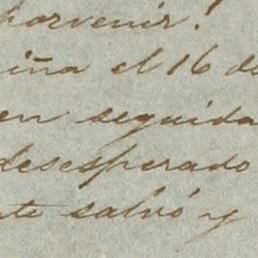 porvenir!
iña el 16 de
en seguida
desesperado
te salvó y